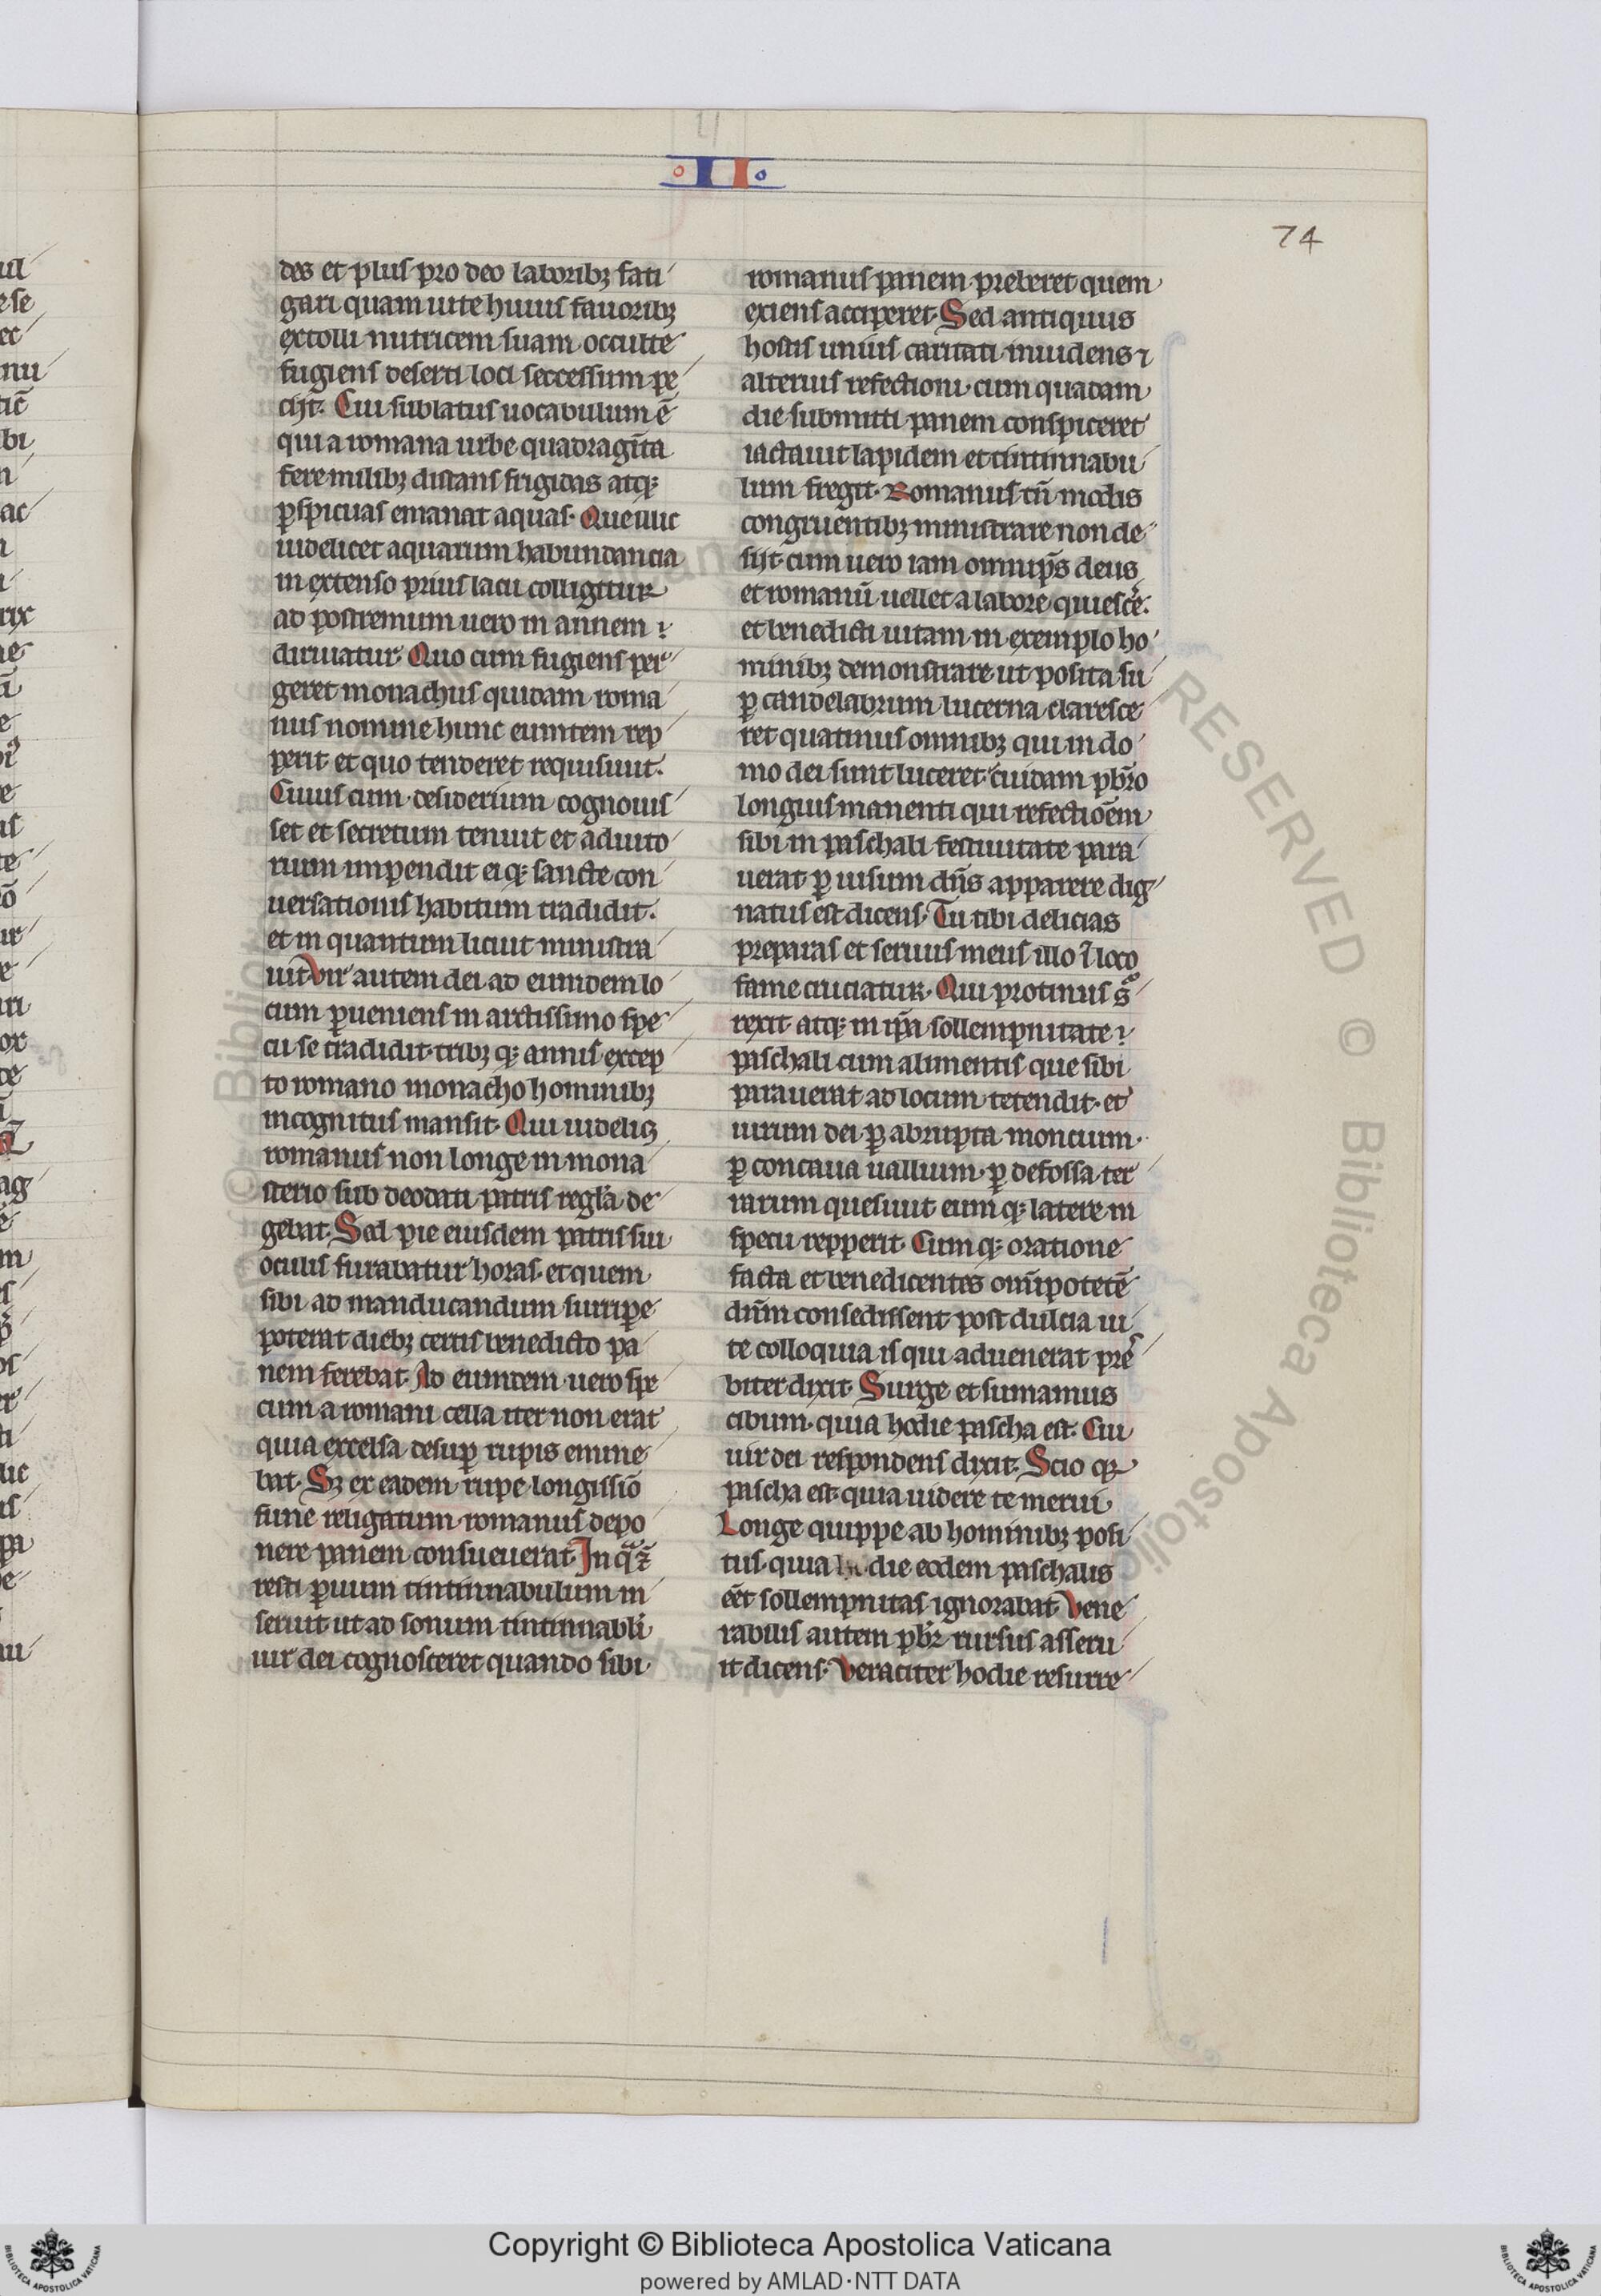 II
74
des et plus pro deo laborib; fati
gari quam uite huius fauorib;
extolli nutricem suam occulte
fugiens deserti loci seccessum pe
ciit. Cui sublatus uocabulum ē
qui a romana urbe quadragīta
fere milib; distans frigidas atq;
ꝑspicuas emanat aquas. Que illic
uidelicet aquarum habundancia
in extenso prius lacu colligitur
ad postremum uero in annem
diriuatur. Quo cum fugiens per
geret monachus quidam roma
nus nomine hunc eumtem rep
perit et quo tenderet requisiuit.
Cuius cum desiderium cognouis
set et secretum tenuit et adiuto
rium impendit eiq; sancte con
uersationis habitum tradidit.
et in quantum licuit ministra
uit. Vir autem dei ad eumdem lo
cum ꝑueniens in artissimo spe
cu se tradidit. trib; q; annis excep
to romano monacho hominib;
incognitus mansit. Qui uidelic;
romanus non longe in mona
sterio sub deodati patris regl'a de
gebat. Sed pie eiusdem patris sui
oculis furabatur horas. et quem
sibi ad manducandum surripe
poterat dieb; certis benedicto pa
nem ferebat. Ad eumtem uero spe
cum a romani cella iter non erat
quia excelsa desuꝑ rupis emine
bat. S; ex eadem rupe longissiō
fune religatum romanus depo
nere panem consueuerat. In q
resti ꝑuum tintinnabulum in
seruit ut ad sonum tintinnabli
uir dei cognosceret quando sibi
romanus panem preberet quem
exiens acciperet. Sed antiquus
hostis unius caritati inuidens ⁊
alterius refectioni. cum quadam
die submitti panem conspiceret
iactauit lapidem et tintinnabu
lum fregit. Romanus tn̄ modis
congruentib; ministrare non de
siit. cum uero iam omnip̄s deus
et romanū uellet a labore quiescē.
et benedicti uitam in exemplo ho
minib; demonstrare ut posita su
ꝑ candelabrum lucerna claresce
ret quatinus omnib; qui in do
mo dei sunt luceret. cuidam pb̄ro
longius manenti qui refectiōem
sibi in paschali festiuitate para
uerat ꝑ uisum dn̄s apparere dig
natus est dicens. Tu tibi delicias
preparas et seruus meus illo ī loco
fame cruciatur. Qui protinus s
rexit atq; in ip̄a sollempnitate
paschali cum alimentis que sibi
parauerat ad locum tetendit. et
uirum dei ꝑ abrupta montium.
ꝑ concaua uallium. ꝑ defossa ter
rarum quesiuit eum q; latere in
specu repperit. Cum q; oratione
facta et benedicentes om̄ipotetē
dn̄m consedissent post dulcia ui
te colloquia is qui aduenerat pres
biter dixit. Surge et sumamus
cibum. quia hodie pascha est. Cui
uir dei respondens dixit. Scio q
pascha est. quia uidere te merui.
Longe quippe ab hominib; posi
tus. quia die eodem paschalis
eēt sollempnitas ignorabat. Vene
rabilis autem pb̄r rursus asseru
it dicens. Veraciter hodie resurre
© Biblioteca Apostolica
RESERVED © Biblioteca Apostolica
Copyright © Biblioteca Apostolica Vaticana
powered by AMLAD·NTT DATA
BIBLIOTECA APOSTOLICA VATICANA
BIBLIOTECA APOSTOLICA VATICANA